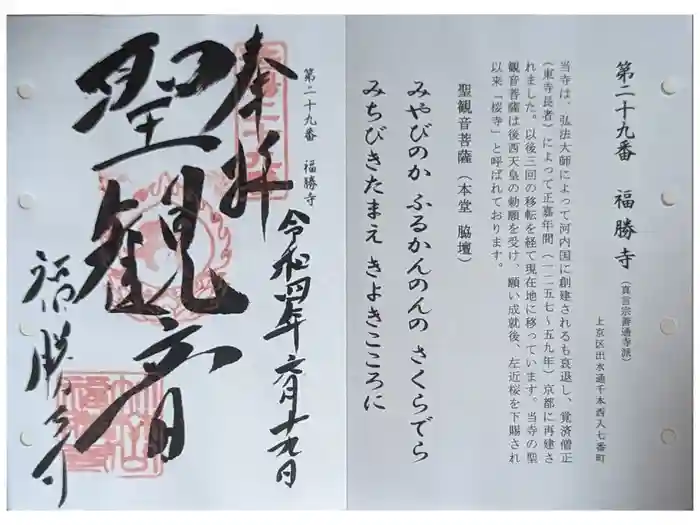 第二十九番 福勝寺(真言宗善通寺派)
上京区出水通千本西入七番町
当寺は、弘法大師によって河内国に創建されるも衰退し、覚済僧正
(東寺長者)によって正嘉年間(一二五七~五九年)京都に再建さ
れました。以後三回の移転を経て現在地に移っています。当寺の聖
観音菩薩は後西天皇の勅願を受け、願い成就後、左近桜を下賜され
以来「桜寺」と呼ばれております。
聖観音菩薩(本堂 脇壇)
みやびのか ふるかんのんの さくらでら
みちびきたまえ きよきこころに
第二十九番 福勝寺
奉拝
令和四年六月十九日
聖観音
福勝寺